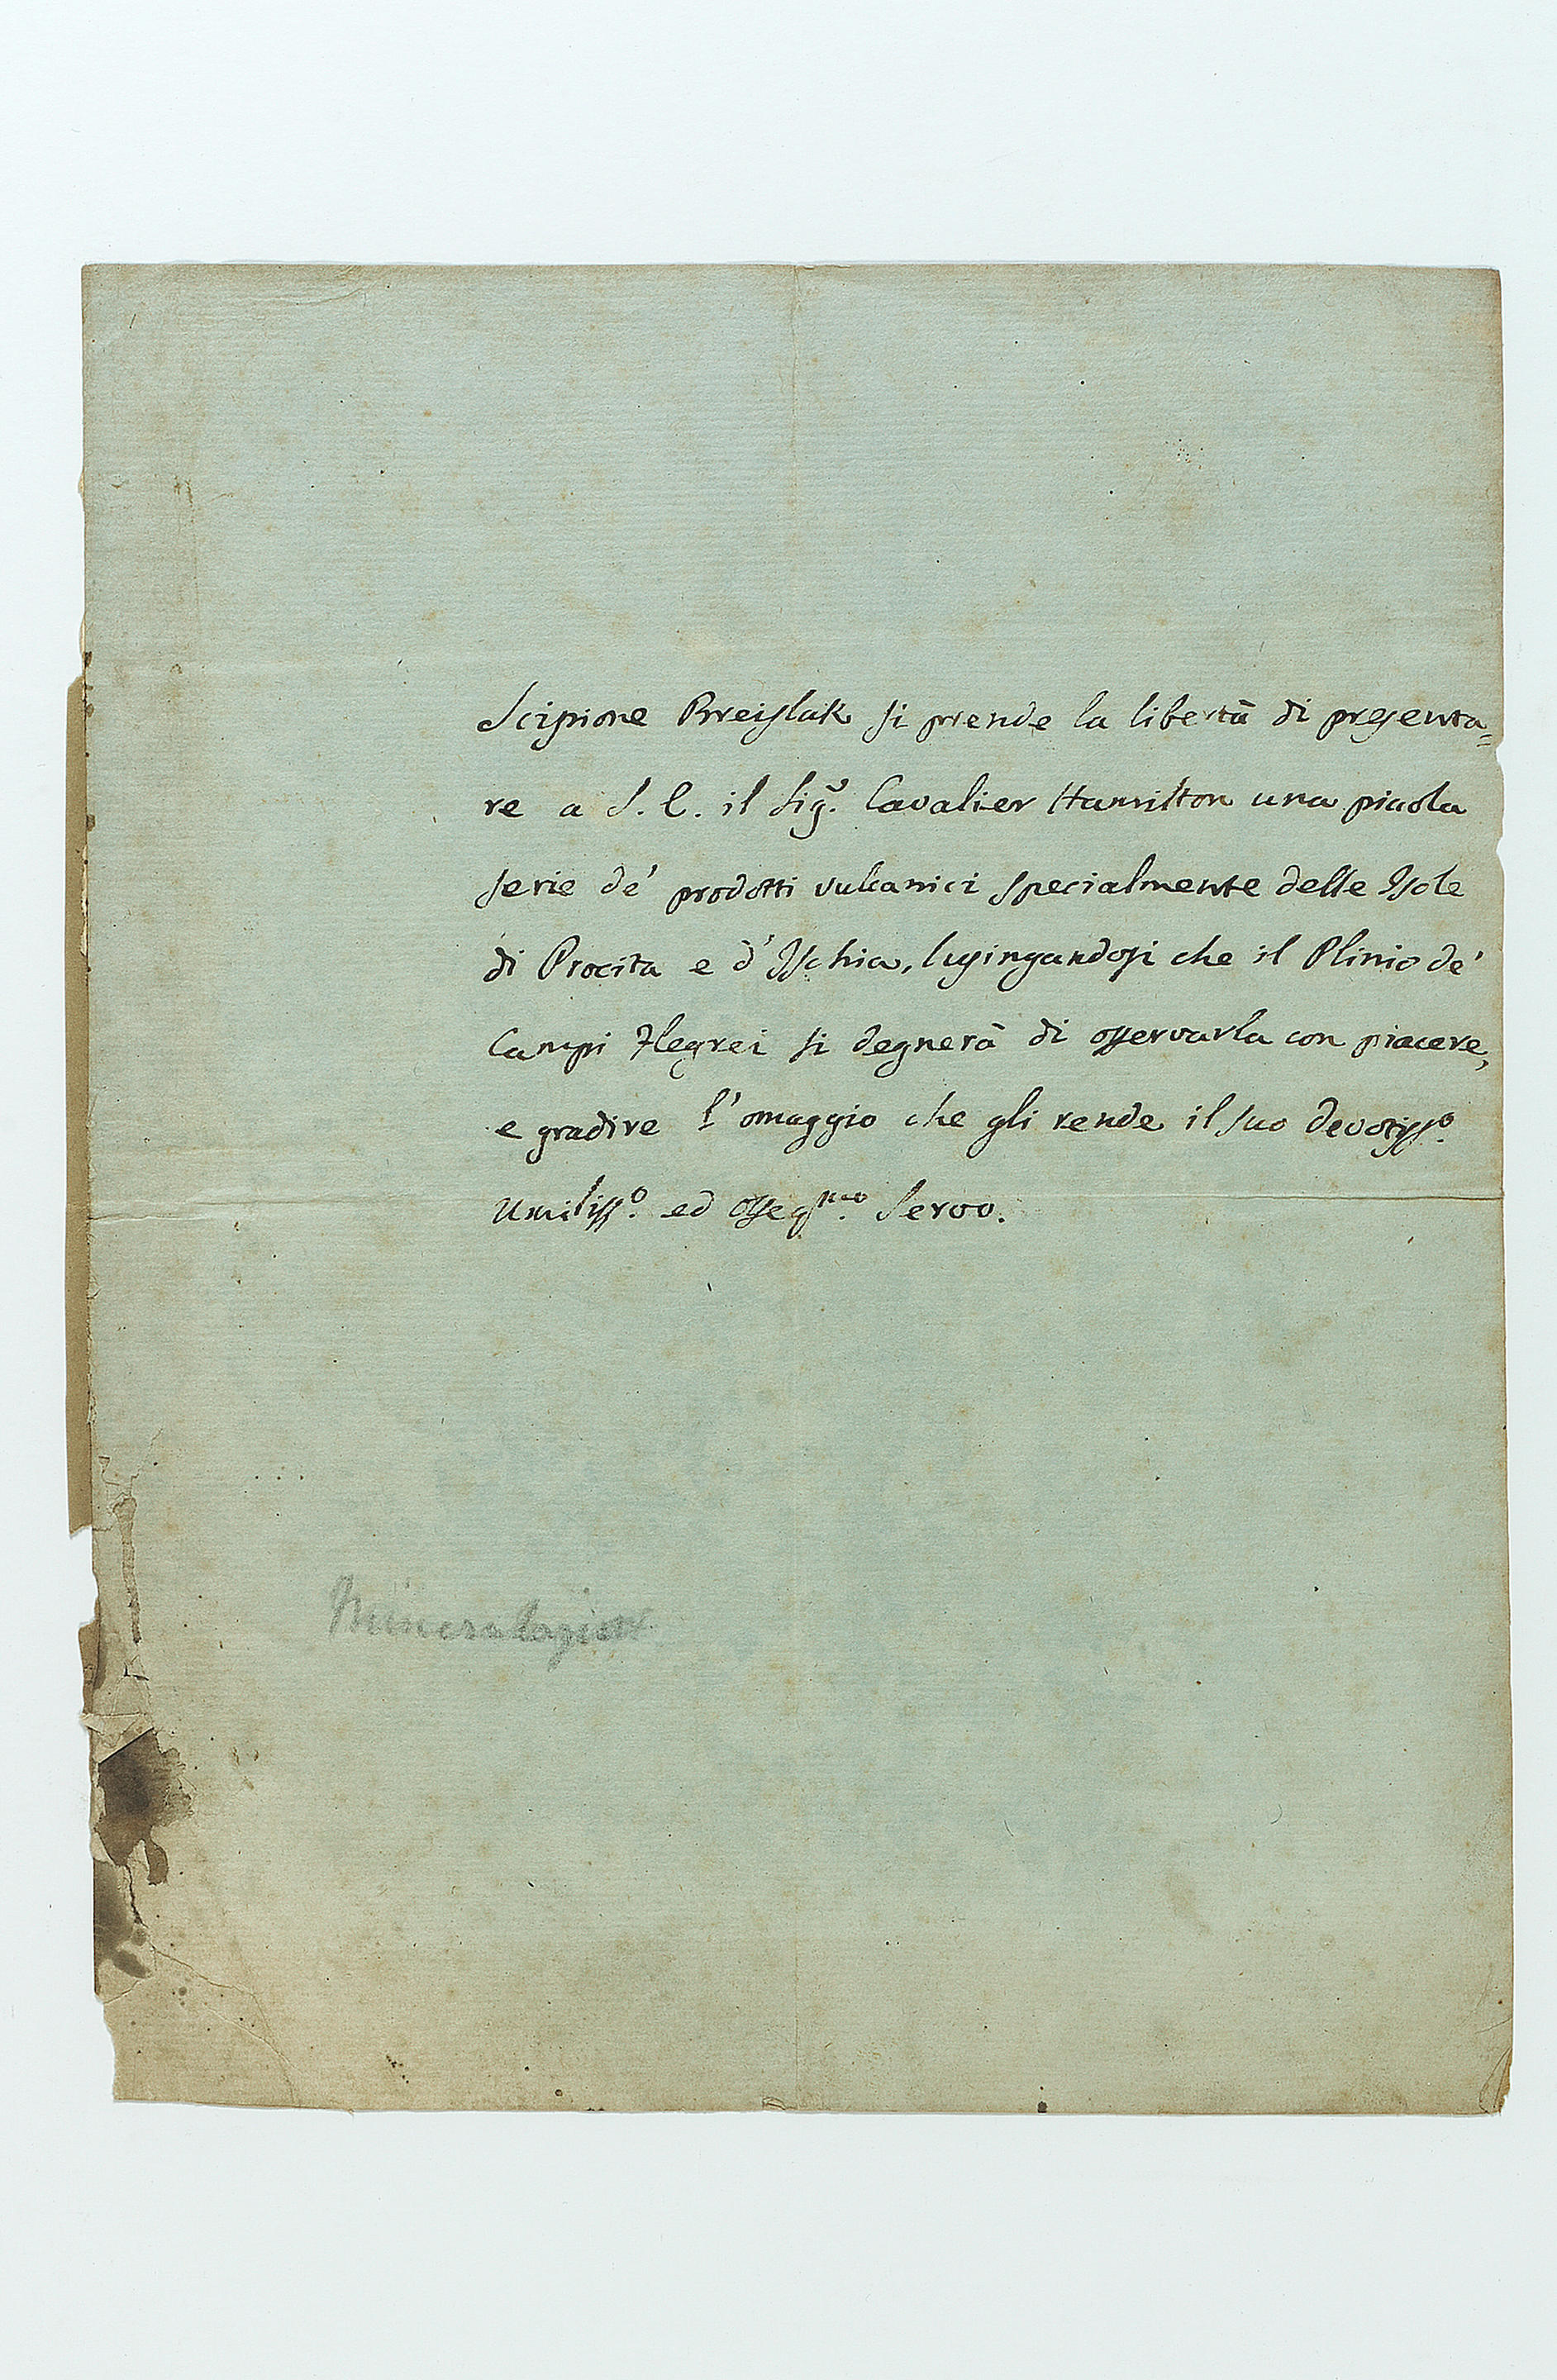 Scipione Breislak si prende la libertà di presenta=
re a S. E. il Sigr. Cavalier Hamilton una picola
serie de' prodotti vulcanici specialmente delle Isole
di Procita e d'Ischia, lusingandosi che il Plinio de'
Campi Flegrei si degnerà di osservarla con piacere,
e gradire l'omaggio che gli rende il suo devotisso.
Umilisso. ed osseqmo. Servo.